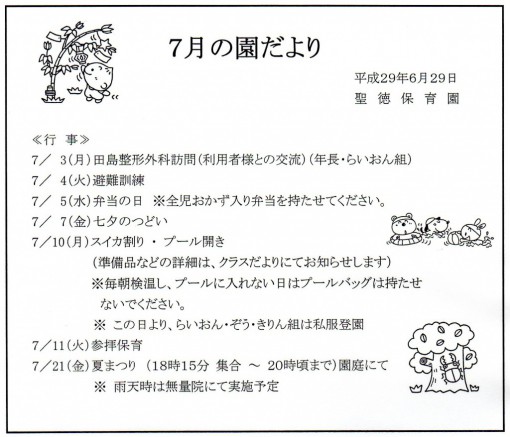 7月の園だより
平成29年6月29日
聖徳保育園
≪行 事≫
7／ 3(月)田島整形外科訪問(利用者様との交流)(年長・らいおん組)
7／ 4(火)避難訓練
7／ 5(水)弁当の日 ※全児おかず入り弁当を持たせてください。
7／ 7(金)七夕のつどい
7／10(月)スイカ割り ・ プール開き
(準備品などの詳細は、クラスだよりにてお知らせします)
※毎朝検温し、プールに入れない日はプールバッグは持たせ
ないでください。
※ この日より、らいおん・ぞう・きりん組は私服登園
7／11(火)参拝保育
7／21(金)夏まつり (18時15分 集合 ～ 20時頃まで)園庭にて
※ 雨天時は無量院にて実施予定